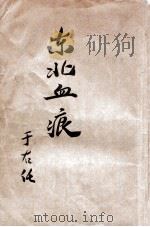 東北血痕
于右任
mtoou.info